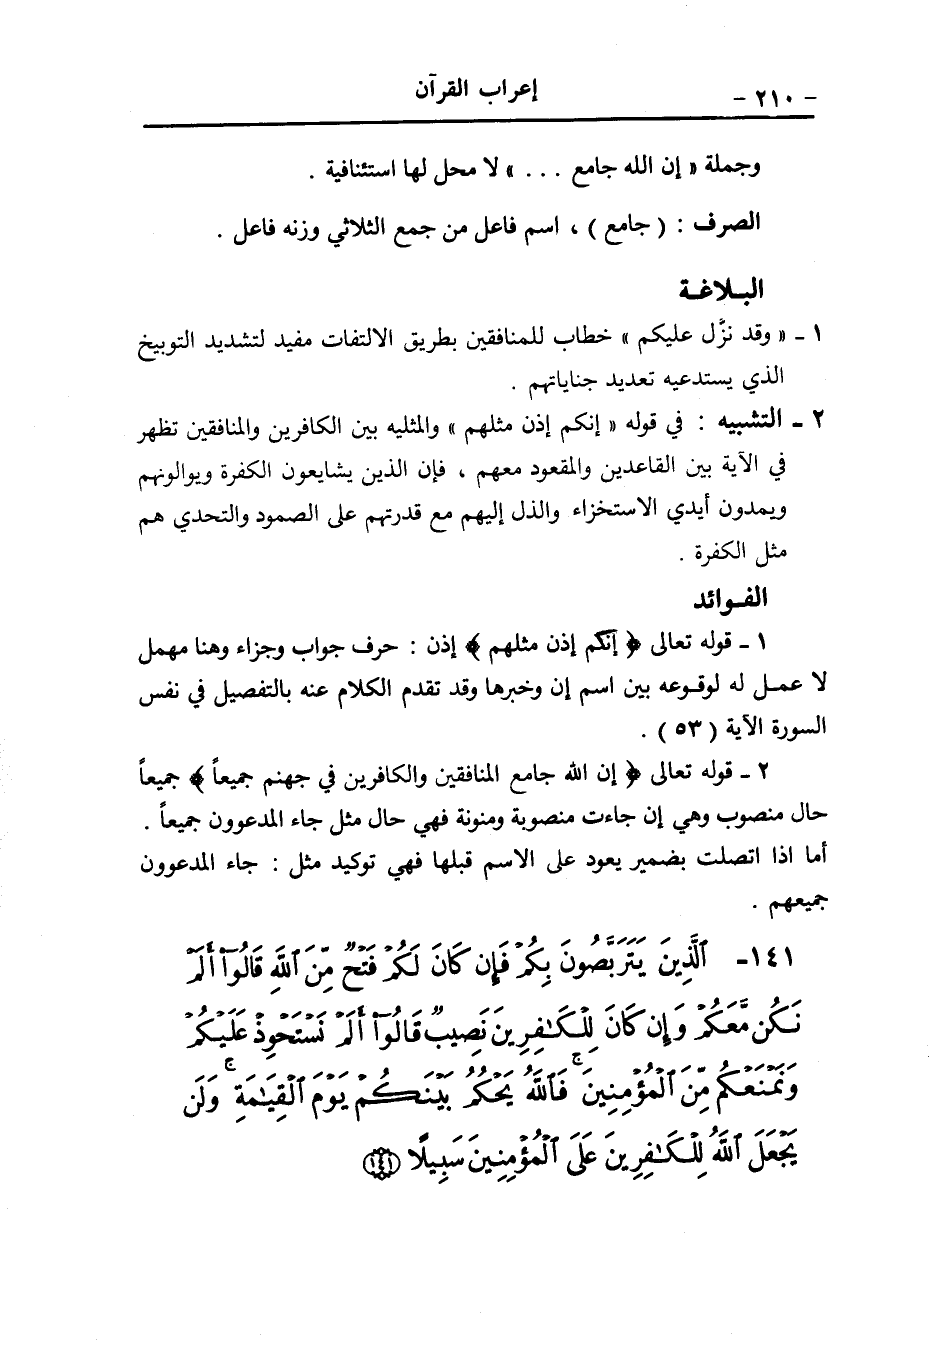 - ٢١٠ - إعراب القرآن
وجملة « إن الله جامع . . . » لا محل لها استئنافية .
الصرف : ( جامع ) ، اسم فاعل من جمع الثلاثي وزنه فاعل .
البـلاغـة
١ ـ « وقد نزَّل عليكم » خطاب للمنافقين بطريق الالتفات مفيد لتشديد التوبيخ
الذي يستدعيه تعديد جناياتهم .
٢ ـ التشبيه : في قوله « إنكم إذن مثلهم » والمثليه بين الكافرين والمنافقين تظهر
في الآية بين القاعدين والمقعود معهم ، فإن الذين يشايعون الكفرة ويوالونهم
ويمدون أيدي الاستخزاء والذل إليهم مع قدرتهم على الصمود والتحدي هم
مثل الكفرة .
الفـوائد
١ ـ قوله تعالى ﴿ إنكم إذن مثلهم ﴾ إذن : حرف جواب وجزاء وهنا مهمل
لا عمـل له لوقـوعه بين اسم إن وخبرها وقد تقدم الكلام عنه بالتفصيل في نفس
السورة الآية ( ٥٣ ) .
٢ ـ قوله تعالى ﴿ إن الله جامع المنافقين والكافرين في جهنم جميعاً ﴾ جميعاً
حال منصوب وهي إن جاءت منصوبة ومنونة فهي حال مثل جاء المدعوون جميعاً .
أما اذا اتصلت بضمير يعود على الاسم قبلها فهي توكيد مثل : جاء المدعوون
جميعهم .
١٤١- ٱلَّذِينَ يَتَرَبَّصُونَ بِكُمْ فَإِن كَانَ لَكُمْ فَتْحٌ مِّنَ ٱللَّهِ قَالُوٓا۟ أَلَمْ
نَكُن مَّعَكُمْ وَإِن كَانَ لِلْكَٰفِرِينَ نَصِيبٌ قَالُوٓا۟ أَلَمْ نَسْتَحْوِذْ عَلَيْكُمْ
وَنَمْنَعْكُم مِّنَ ٱلْمُؤْمِنِينَ ۚ فَٱللَّهُ يَحْكُمُ بَيْنَكُمْ يَوْمَ ٱلْقِيَٰمَةِ ۚ وَلَن
يَجْعَلَ ٱللَّهُ لِلْكَٰفِرِينَ عَلَى ٱلْمُؤْمِنِينَ سَبِيلًا ١٤١